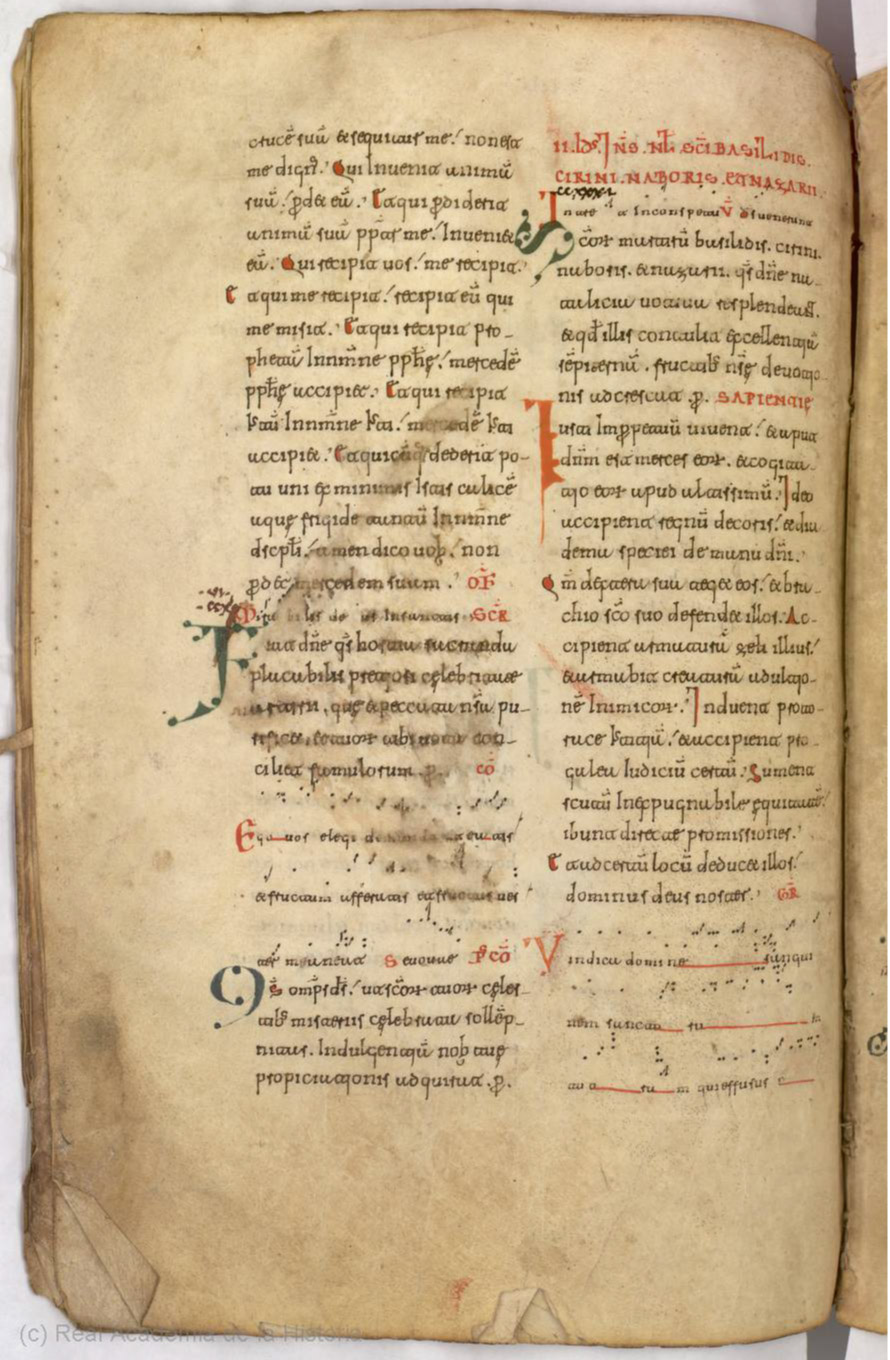 crucē suū & sequitur me. non est
me dign⁹. Qui Inuenit animū
suū. ꝑdet eū. Et qui ꝑdiderit
animū suū ppt̄ me. Inueniet
eū. Qui recipit uos. me recipit.
Et qui me recipit. recipit eū qui
me misit. Et qui recipit pro-
phetā Innm̄ne pph̄ę. mercedē
pph̄ę accipiet. Et qui recipit
Iustū Innm̄ne Iusti. mercedē Iusti
accipiet. Et quicūq; dederit po-
tū uni ex minimis Istis calicē
aquę frigide tantū Innm̄ne
discpl̄i. amen dico uob̄. non
ꝑdet mercedem suam. OF̄
Mirabilis ds̄ SCR̄
dn̄e qs̄
placabilis
que & peccata nr̄a pu-
rificet
ciliet famulorum. ꝑ. cō
Ego uos elegi de mundo ut eatis
& fructum afferatis et fructus ues
ter maneat Seuouae P̄ cō
Qs̄ omp̄s ds̄. ut scōꝝ tuoꝝ celes-
tib; misteriis cęlebrata sollēp-
nitas. Indulgentiā nob̄ tuę
propiciationis adquirat. ꝑ.
II. Id̄s IuN̄S. NT̄L SC̄I BASILIDIS.
CIRINI. NABORIS. ET NAZARII.
Intret In conspectu V̄ ds̄ uenerunt
Scōꝝ martirū basilidis. cirini.
naboris. & nazarii. qs̄ dn̄e na-
talicia uotiua resplendeat.
& qđ illis contulit excellentiā
sēpiternā. fructib; nr̄ę deuotio-
nis adcrescat. ꝑ. SAPIENTIĘ
Iusti Imꝑpetuū uiuent. & aput
dn̄m est merces eoꝝ. & cogita-
tio eoꝝ apud altissimū. Ideo
accipient regnū decoris. & dia-
dema speciei de manu dn̄i.
Qm̄ dextera sua teget eos. & bra-
chio sc̄o suo defendet illos. Ac-
cipient armaturā zeli illius.
& armabit creaturā ad ultio-
nē Inimicoꝝ. Induent pro to-
race Iustitiā. & accipient pro
galea Iudiciū certū. Sument
scutū Inexpugnabile equitatē.
ibunt directe promissiones.
Et ad certū locū deducet illos
dominus deus noster. GR̄
Vindica domine sanqui
nem sanctoru
tuoru m qui effusus e